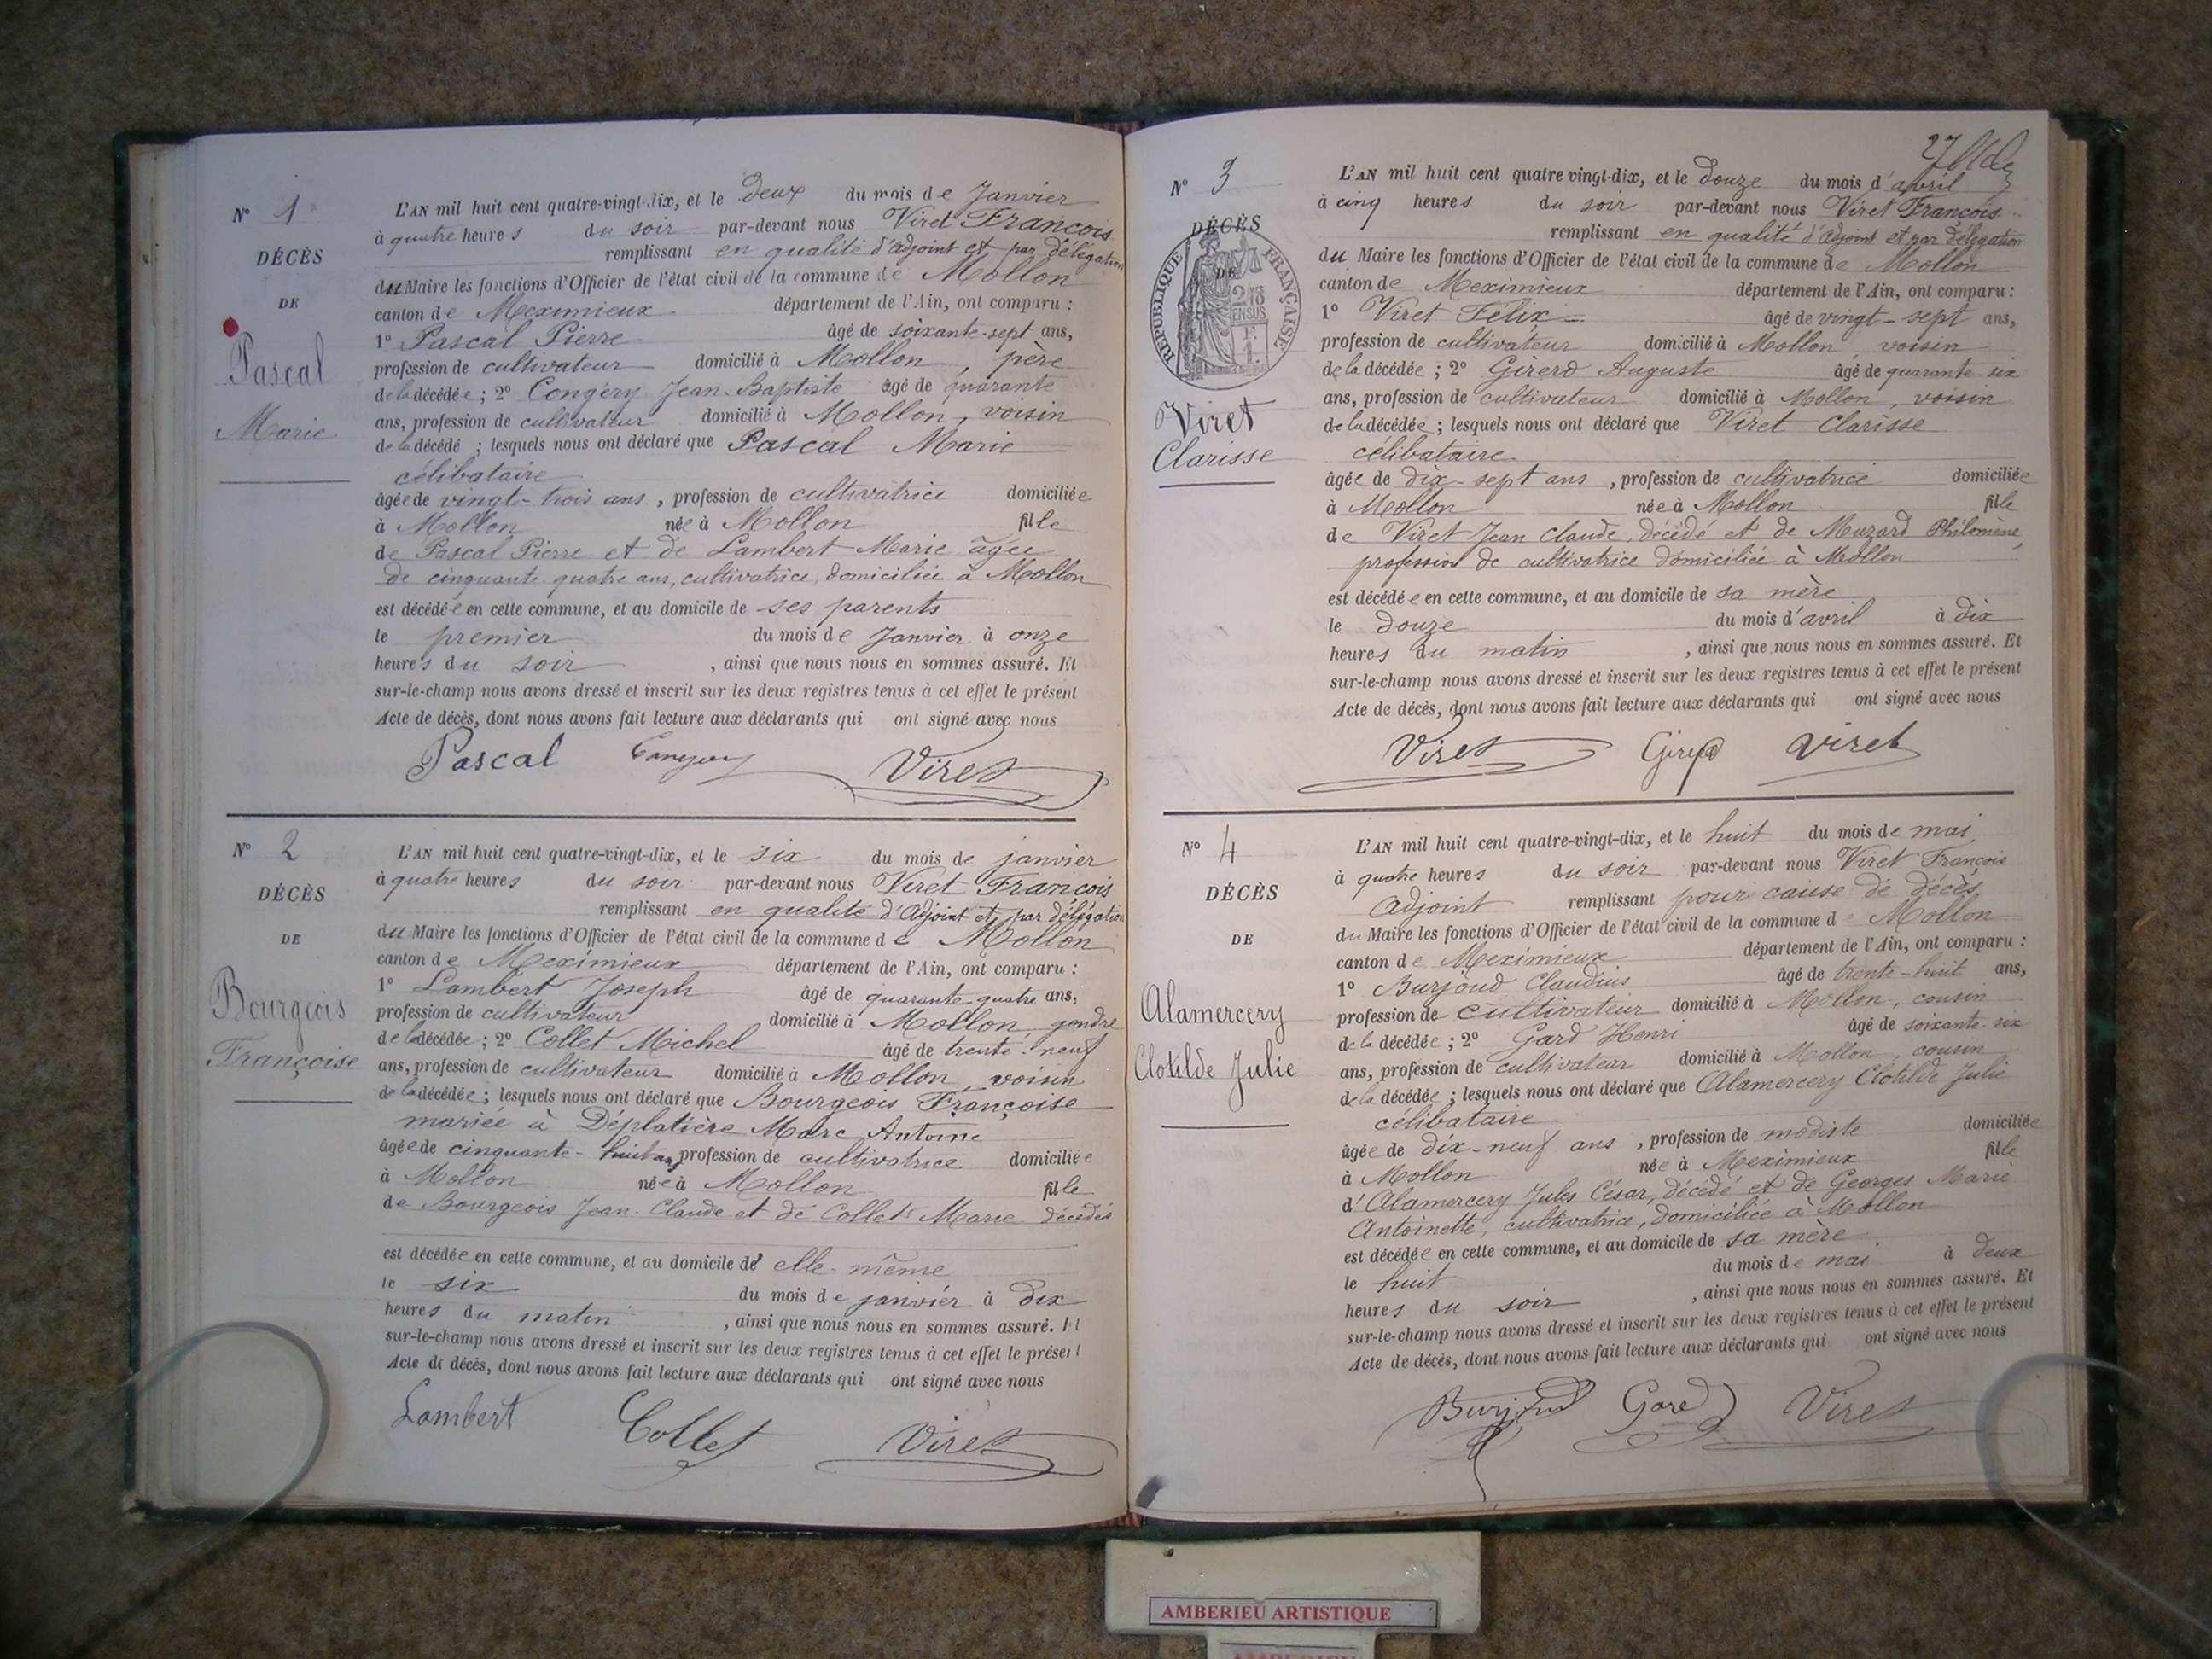 N° 1
DÉCÈS
DE
Pascal
Marie
L'AN mil huit cent quatre-vingt-dix, et le deux du mois de Janvier
à quatre heures du soir par-devant nous Viret François
remplissant en qualité d'adjoint et par délégation
du Maire les fonctions d'Officier de l'état civil de la commune de Mollon
canton de Meximieux département de l'Ain, ont comparu :
1° Pascal Pierre âgé de soixante-sept ans,
profession de cultivateur domicilié à Mollon, père
de la décédée ; 2° Congéry Jean-Baptiste âgé de quarante
ans, profession de cultivateur domicilié à Mollon, voisin
de la décédé ; lesquels nous ont déclaré que Pascal Marie
célibataire
âgée de vingt-trois ans, profession de cultivatrice domiciliée
à Mollon née à Mollon fille
de Pascal Pierre et de Lambert Marie âgée
de cinquante quatre ans, cultivatrice, domiciliée à Mollon
est décédée en cette commune, et au domicile de ses parents
le premier du mois de Janvier à onze
heures du soir, ainsi que nous nous en sommes assuré. Et
sur-le-champ nous avons dressé et inscrit sur les deux registres tenus à cet effet le présent
Acte de décès, dont nous avons fait lecture aux déclarants qui ont signé avec nous
Pascal Congery Viret
N° 2
DÉCÈS
DE
Bourgeois
Françoise
L'AN mil huit cent quatre-vingt-dix, et le six du mois de janvier
à quatre heures du soir par-devant nous Viret François
remplissant en qualité d'Adjoint et par délégation
du Maire les fonctions d'Officier de l'état civil de la commune de Mollon
canton de Meximieux département de l'Ain, ont comparu :
1° Lambert Joseph âgé de quarante-quatre ans,
profession de cultivateur domicilié à Mollon, gendre
de la décédée ; 2° Collet Michel âgé de trente-neuf
ans, profession de cultivateur domicilié à Mollon, voisin
de la décédée ; lesquels nous ont déclaré que Bourgeois Françoise
mariée à Déplatière Marc Antoine
âgée de cinquante-huit ans profession de cultivatrice domiciliée
à Mollon née à Mollon fille
de Bourgeois Jean-Claude et de Collet Marie décédés
est décédée en cette commune, et au domicile de elle-même
le six du mois de janvier à dix
heures du matin, ainsi que nous nous en sommes assuré. Et
sur-le-champ nous avons dressé et inscrit sur les deux registres tenus à cet effet le présent
Acte de décès, dont nous avons fait lecture aux déclarants qui ont signé avec nous
Lambert Collet Viret
27
N° 3
DÉCÈS
DE
RÉPUBLIQUE FRANÇAISE
Viret
Clarisse
L'AN mil huit cent quatre vingt-dix, et le douze du mois d'avril
à cinq heures du soir par-devant nous Viret François
remplissant en qualité d'adjoint et par délégation
du Maire les fonctions d'Officier de l'état civil de la commune de Mollon
canton de Meximieux département de l'Ain, ont comparu :
1° Viret Félix âgé de vingt-sept ans,
profession de cultivateur domicilié à Mollon, voisin
de la décédée ; 2° Girerd Auguste âgé de quarante-six
ans, profession de cultivateur domicilié à Mollon, voisin
de la décédée ; lesquels nous ont déclaré que Viret Clarisse
célibataire
âgée de dix-sept ans, profession de cultivatrice domiciliée
à Mollon née à Mollon fille
de Viret Jean Claude, décédé et de Muzard Philomène,
profession de cultivatrice domiciliée à Mollon
est décédée en cette commune, et au domicile de sa mère
le douze du mois d'avril à dix
heures du matin, ainsi que nous nous en sommes assuré. Et
sur-le-champ nous avons dressé et inscrit sur les deux registres tenus à cet effet le présent
Acte de décès, dont nous avons fait lecture aux déclarants qui ont signé avec nous
Viret Girerd Viret
N° 4
DÉCÈS
DE
Alamercery
Clotilde Julie
L'AN mil huit cent quatre-vingt-dix, et le huit du mois de mai
à quatre heures du soir par-devant nous Viret François
Adjoint remplissant pour cause de décès
du Maire les fonctions d'Officier de l'état civil de la commune de Mollon
canton de Meximieux département de l'Ain, ont comparu :
1° Burjoud Claudius âgé de trente-huit ans,
profession de cultivateur domicilié à Mollon, cousin
de la décédée ; 2° Gard Henri âgé de soixante-six
ans, profession de cultivateur domicilié à Mollon, cousin
de la décédée ; lesquels nous ont déclaré que Alamercery Clotilde Julie
célibataire
âgée de dix-neuf ans, profession de modiste domiciliée
à Mollon née à Meximieux fille
d'Alamercery Jules César, décédé et de Georges Marie
Antoinette, cultivatrice, domiciliée à Mollon
est décédée en cette commune, et au domicile de sa mère
le huit du mois de mai à deux
heures du soir, ainsi que nous nous en sommes assuré. Et
sur-le-champ nous avons dressé et inscrit sur les deux registres tenus à cet effet le présent
Acte de décès, dont nous avons fait lecture aux déclarants qui ont signé avec nous
Burjoud Gard Viret
AMBERIEU ARTISTIQUE